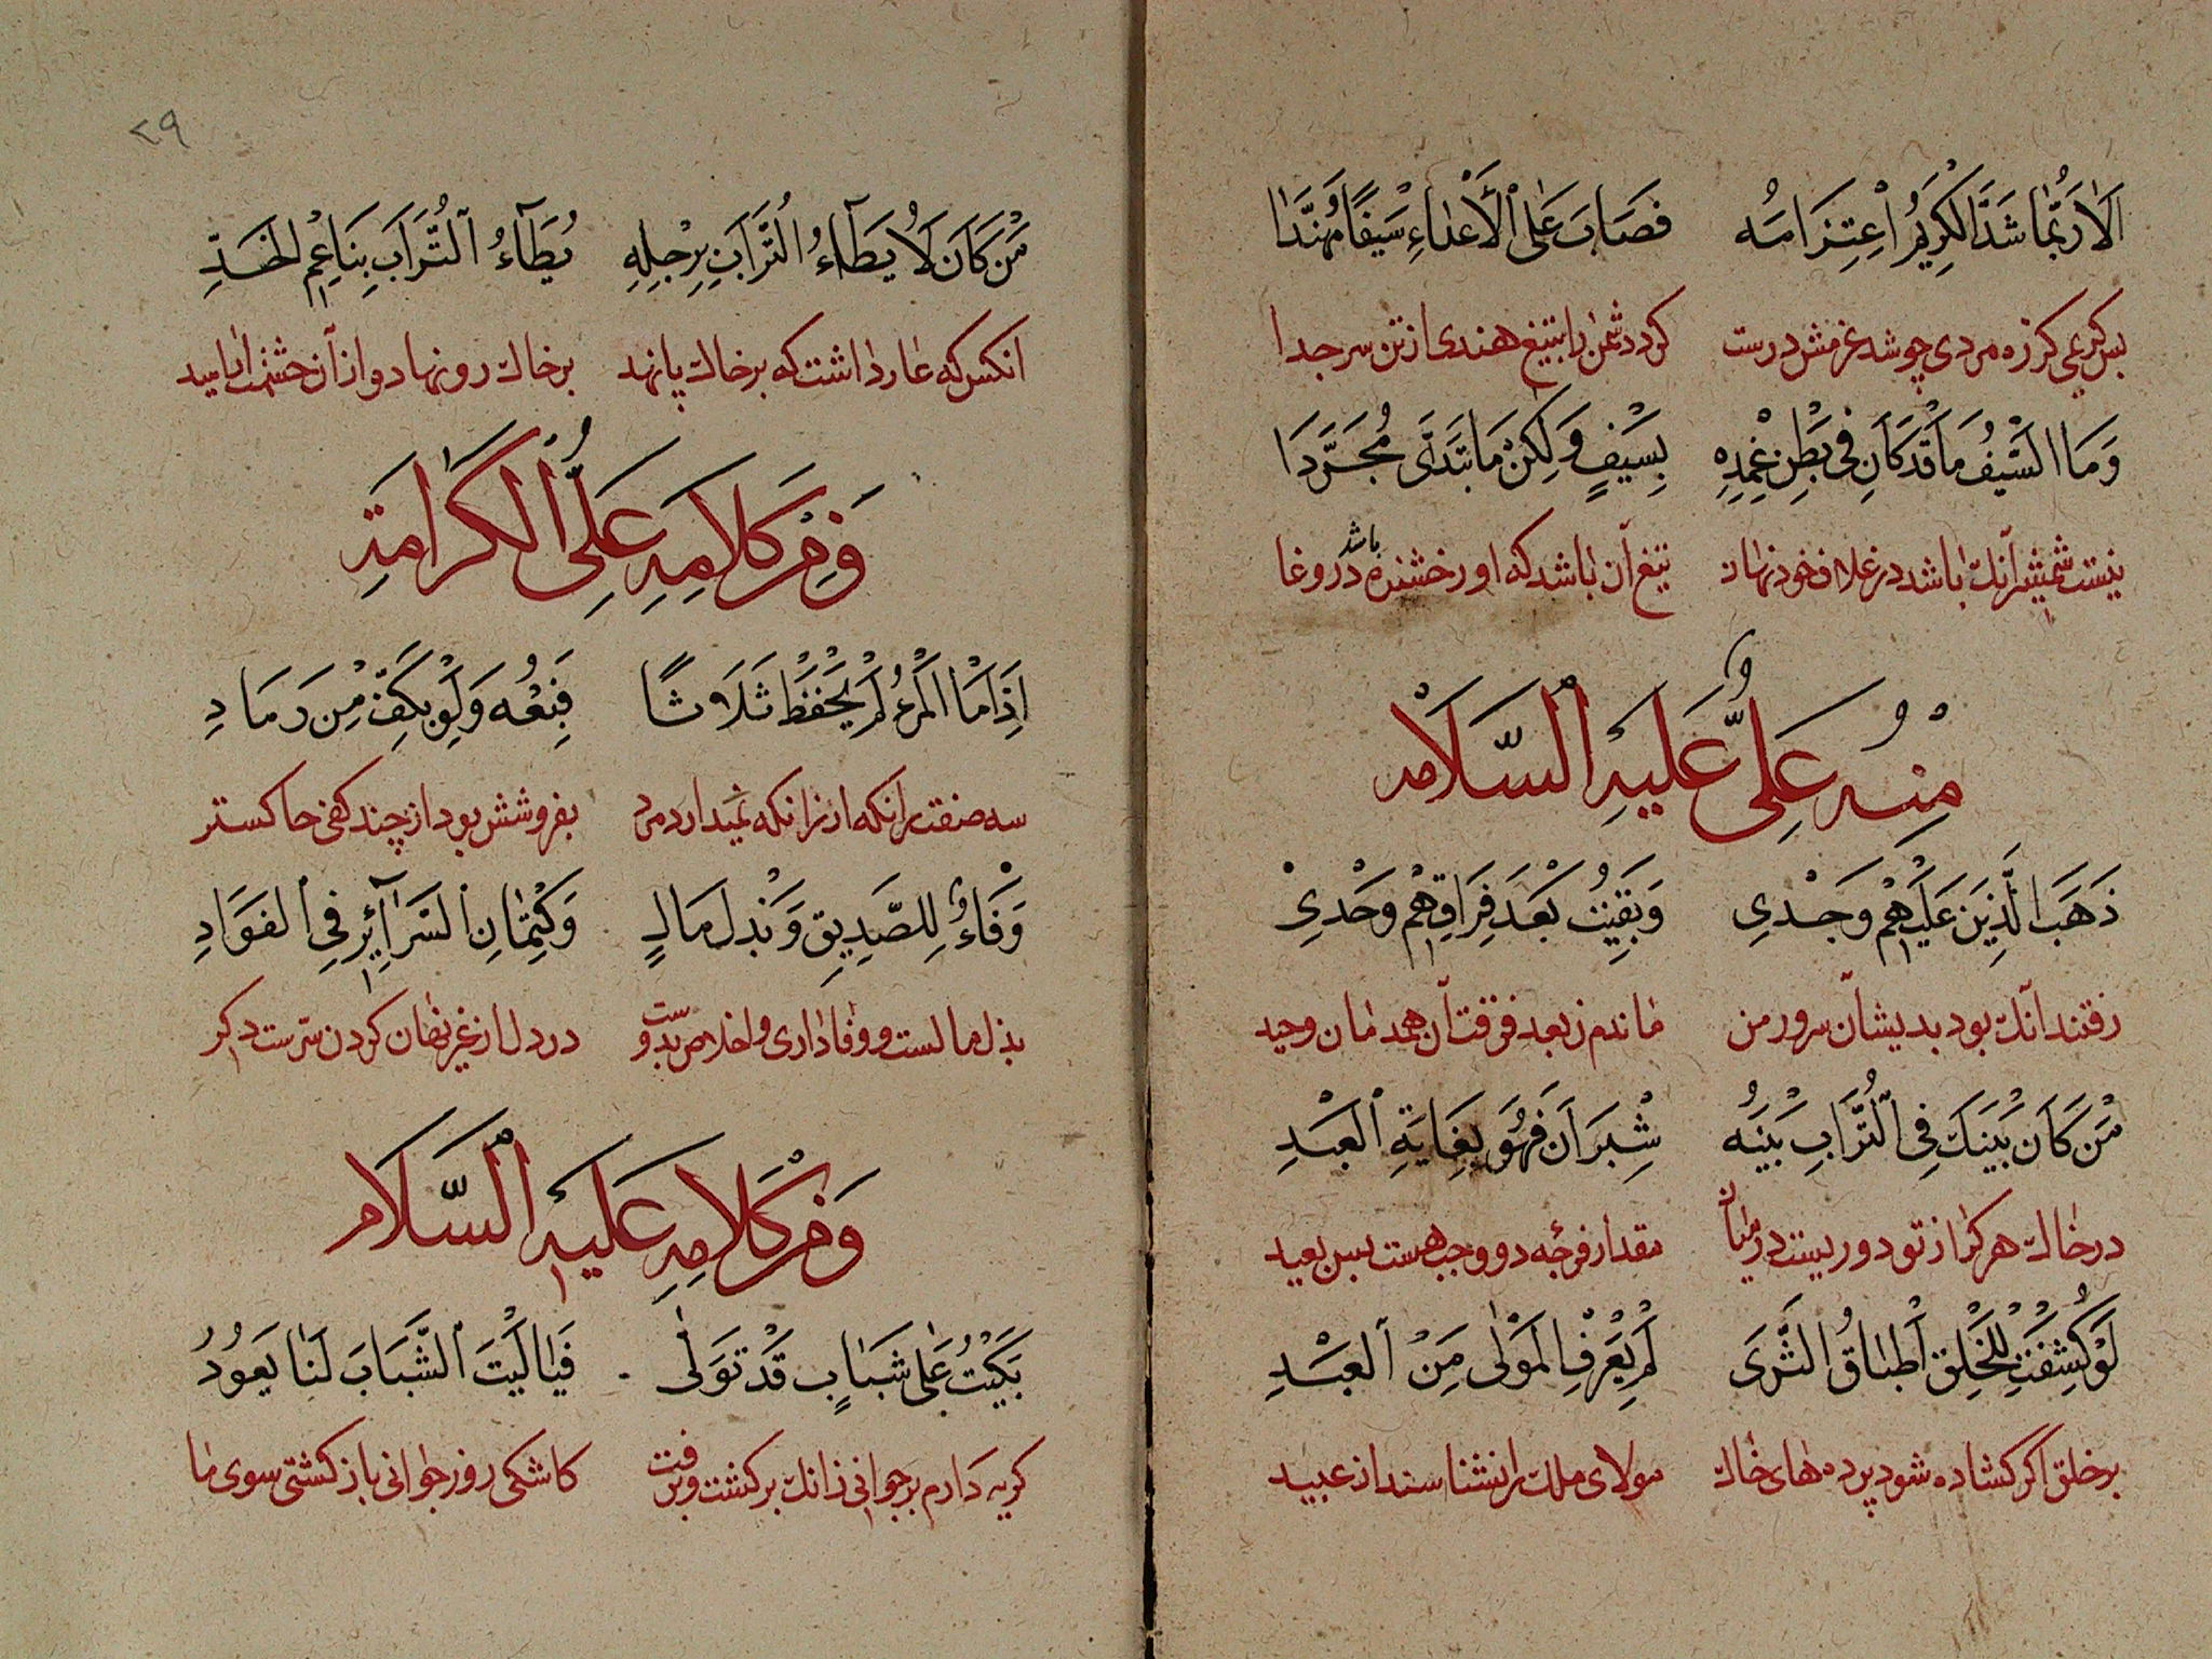 اَلاٰ رُبَّمٰا شَدَّ الْكَرِيْمُ اعْتِزَامَهُ فَصَابَ عَلَى الْأَعْدٰاءِ سَيْفًا مُهَنَّدَا
بس كريمى كز ره مردى چو شد عزمش درست كرد دشمن را بتيغ هندى از تن سر جدا
وَمَا السَّيْفُ مَا قَدْ كَانَ فِى بَطْنِ غِمْدِهِ بِسَيْفٍ وَلٰكِنْ مَا تَبَدَّى مُجَرَّدَا
نيست شمشير آنك باشد در غلاف خود نهان تيغ آن باشد كه او رخشنده باشد در وغا
مِنْهُ عَلِىٌّ عَلَيْهِ السَّلَامْ
ذَهَبَ الَّذِيْنَ عَلَيْهِمْ وَجْدِى وَبَقِيْتُ بَعْدَ فِرَاقِهِمْ وَحْدِىْ
رفتند آنك بود بديشان سرور من ماندم ز بعد فرقت آن همدمان وحيد
مَنْ كَانَ بَيْنَكَ فِى التُّرَابِ وَبَيْنَهُ شِبْرَانِ فَهُوَ بِغَايَةِ الْبُعْدِ
در خاك هر كرا ز تو دور نيست در ميان مقدار فرجه دو وجب هست بس بعيد
لَوْ كُشِفَتْ لِلْخَلْقِ أَطْبٰاقُ الثَّرَى لَمْ يُعْرَفِ الْمَوْلٰى مِنَ الْعَبْدِ
بر خلق اگر گشاده شود پرده هاى خاك مولاى ملك را نشناسند از عبيد
٢٩
مَنْ كَانَ لَا يَطَآءُ التُّرَابَ بِرِجْلِهِ يُطَآءُ التُّرَابَ بِنَاعِمِ الْخَدِّ
انكس كه عار داشت كه بر خاك پا نهد بر خاك رو نهاد و از آن
وَمِنْ كَلَامِهِ عَلِىُّ الْكَرَامَةِ
اِذَا مَا الْمَرْءُ لَمْ يَحْفَظْ ثَلَاثًا فَبِعْهُ وَلَوْ بِكَفٍّ مِنْ رَمَادِ
سه صفت را نميدارد مرد بفروشش بود از چند كفى خاكستر
وَفَاءٌ لِلصَّدِيْقِ وَبَذْلُ مَالٍ وَكِتْمٰانِ السَّرَآئِرِ فِى الْفَوَادِ
بذل مالست و وفادارى و اخلاص بدوست در دل از غير نهان كردن سرست دكر
وَمِنْ كَلَامِهِ عَلَيْهِ السَّلَامْ
بَكَيْتُ عَلٰى شَبَابٍ قَدْ تَوَلّٰى فَيٰا لَيْتَ الشَّبَابَ لَنٰا يَعُوْدُ
كريه دارم بر جوانى زانك بركشت و برفت كاشكى روز جوانى باز كشتى سوى ما